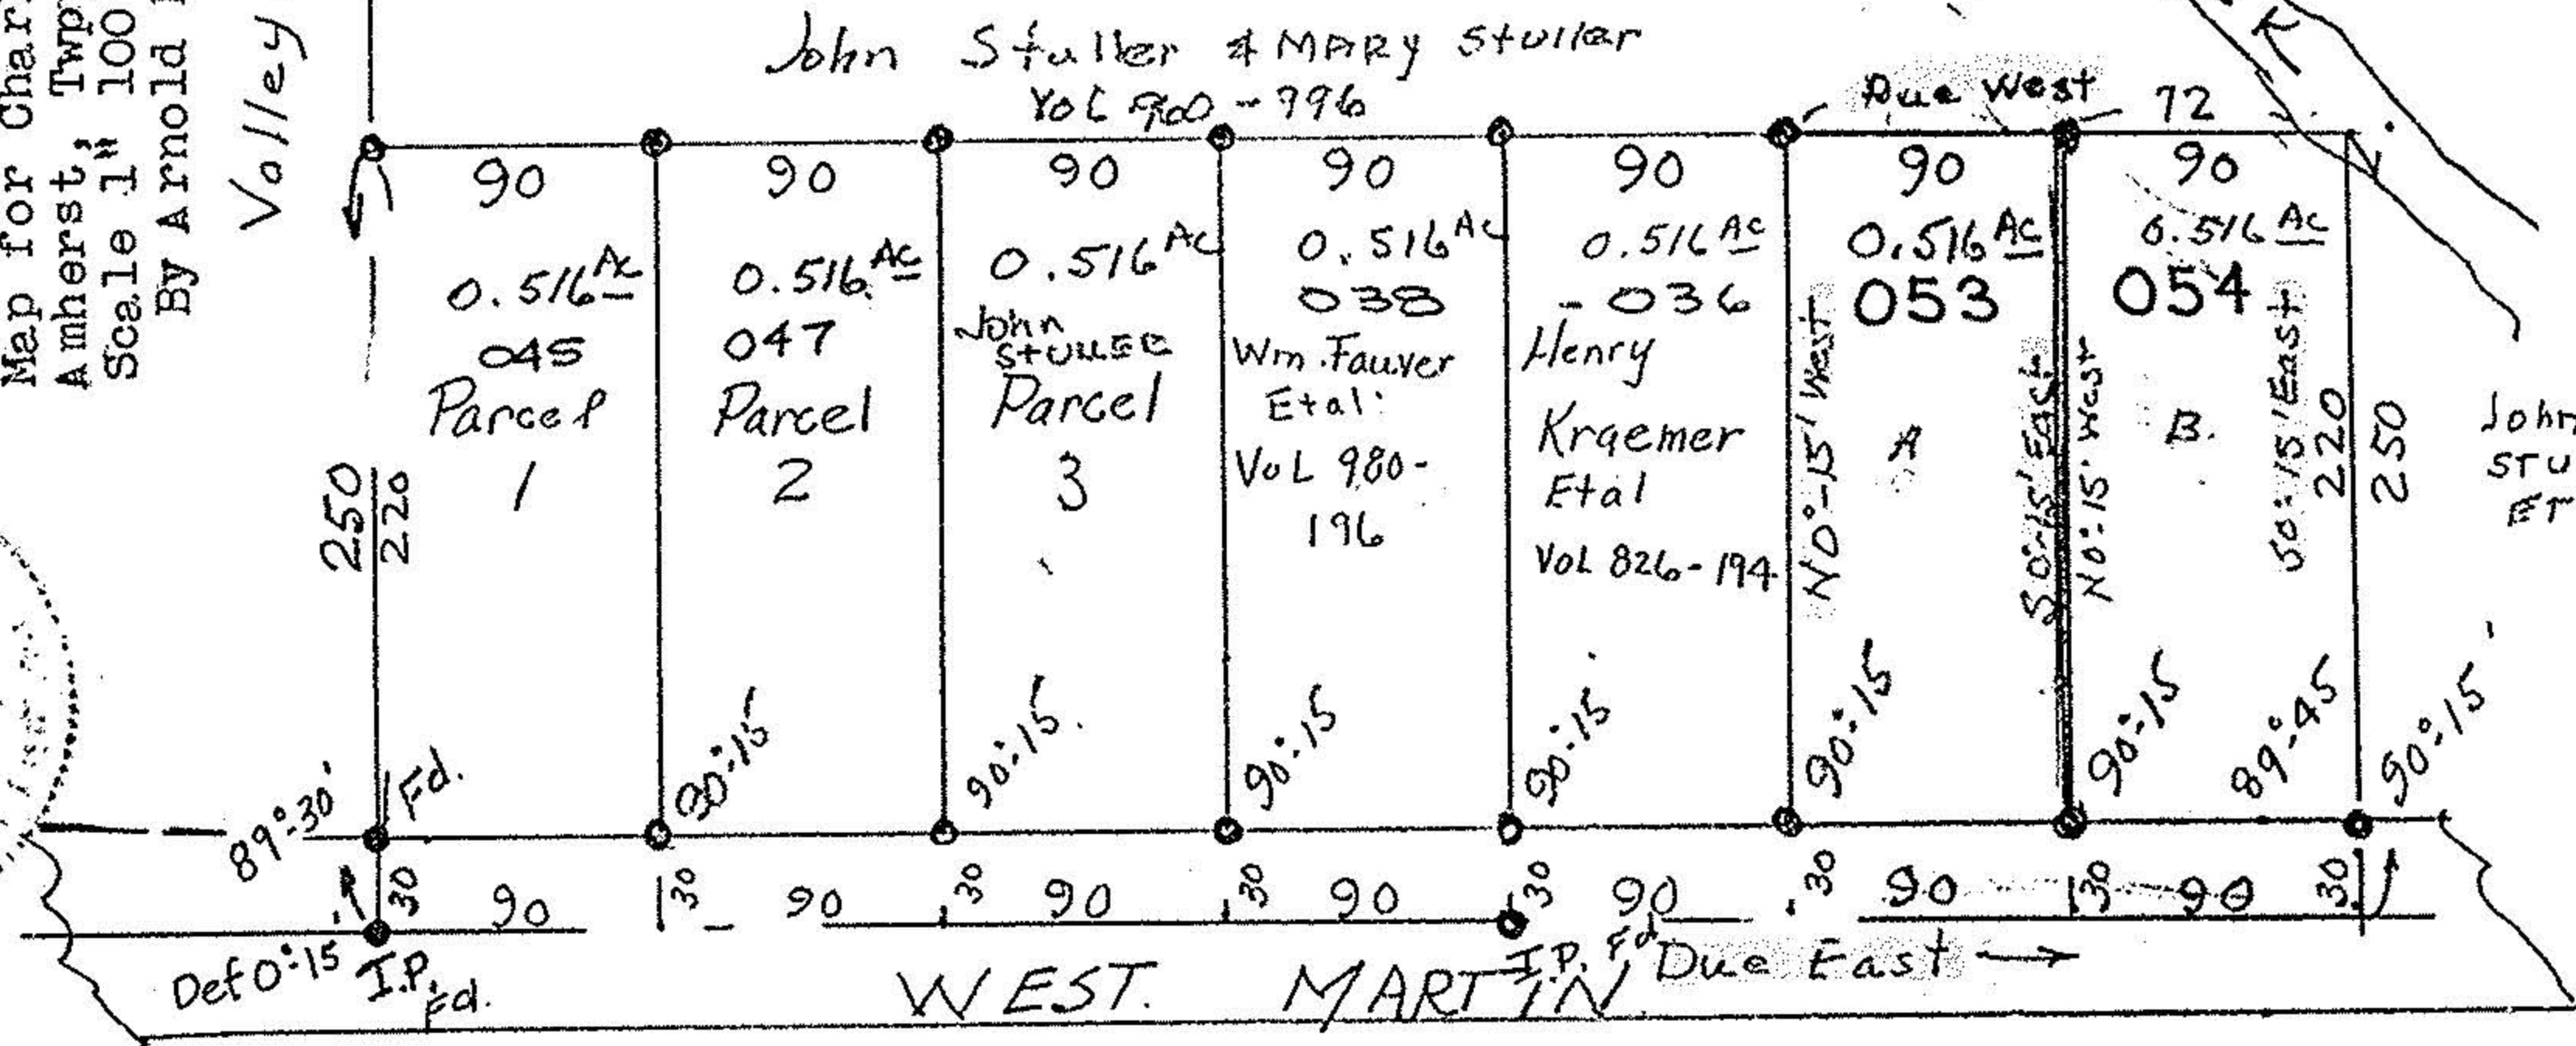 Map for Char
Amherst, Twp
Scale 1" 100
By Arnold
Valley
John Stuller & MARY Stuller
VOL 960-996
Due West
72
K
90 90 90 90 90 90 90
0.516 Ac
045
Parcel
1
0.516 Ac
047
Parcel
2
0.516 Ac
John
STULLER
Parcel
3
0.516 Ac
038
Wm. Fauver
Etal.
VoL 980-
196
0.516 Ac
-036
Henry
Kraemer
Etal
VoL 826-194
0.516 Ac
053
A
0.516 Ac
054
B.
N0°-15' West
S0°-15' East
N0°-15' West
S0°-15' East
250
220
220
250
John
STU
ET
89°-30'
Fd.
90°-15'
90°-15'
90°-15
90°-15
90°-15
90°-15
89°-45
90°-15'
30 90 30 90 30 90 30 90 30 90 30 90 30 90 30
Def 0°-15'
I.P.
Fd.
I.P. Fd
Due East →
WEST. MARTIN